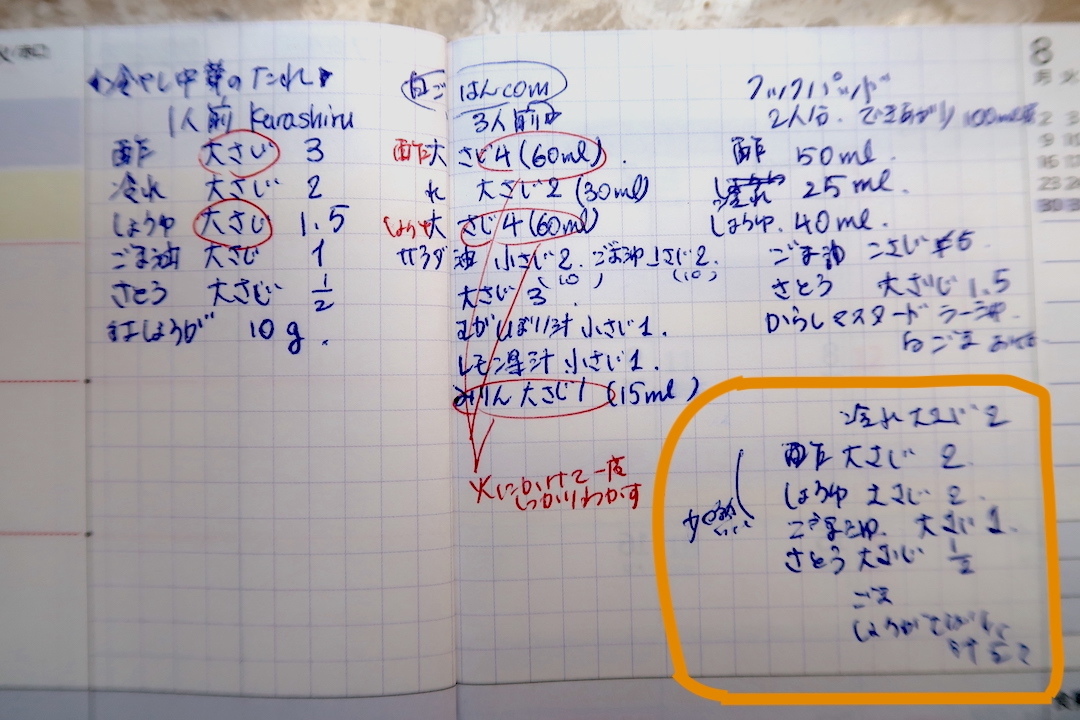 冷やし中華のたれ
1人前 Kurashiru
酢 大さじ 3
冷れ 大さじ 2
しょうゆ 大さじ 1.5
ごま油 大さじ 1
さとう 大さじ 1/2
紅しょうが 10g.
白ごはんcom
3人前
酢大さじ4(60ml).
れ 大さじ2(30ml)
しょうゆ大さじ4(60ml)
サラダ油 小さじ2. ごま油 小さじ2.
(10) (10)
大さじ 3
しぼり汁 小さじ1.
レモン果汁 小さじ1.
みりん 大さじ1 (15ml)
火にかけて一度
しっかりわかす
クックパッド
2人分. できあがり 100ml
酢 50ml.
25ml.
しょうゆ. 40ml.
ごま油 こさじ 5
さとう 大さじ1.5
からしマスタード ラー油.
白ごま
冷れ 大さじ 2
酢 大さじ 2
しょうゆ 大さじ 2.
ごまあゆ. 大さじ 1.
さとう 大さじ 1/2
ごま
しょうが
8
月 火
2 3
9 10
16 17
23 24
30 31